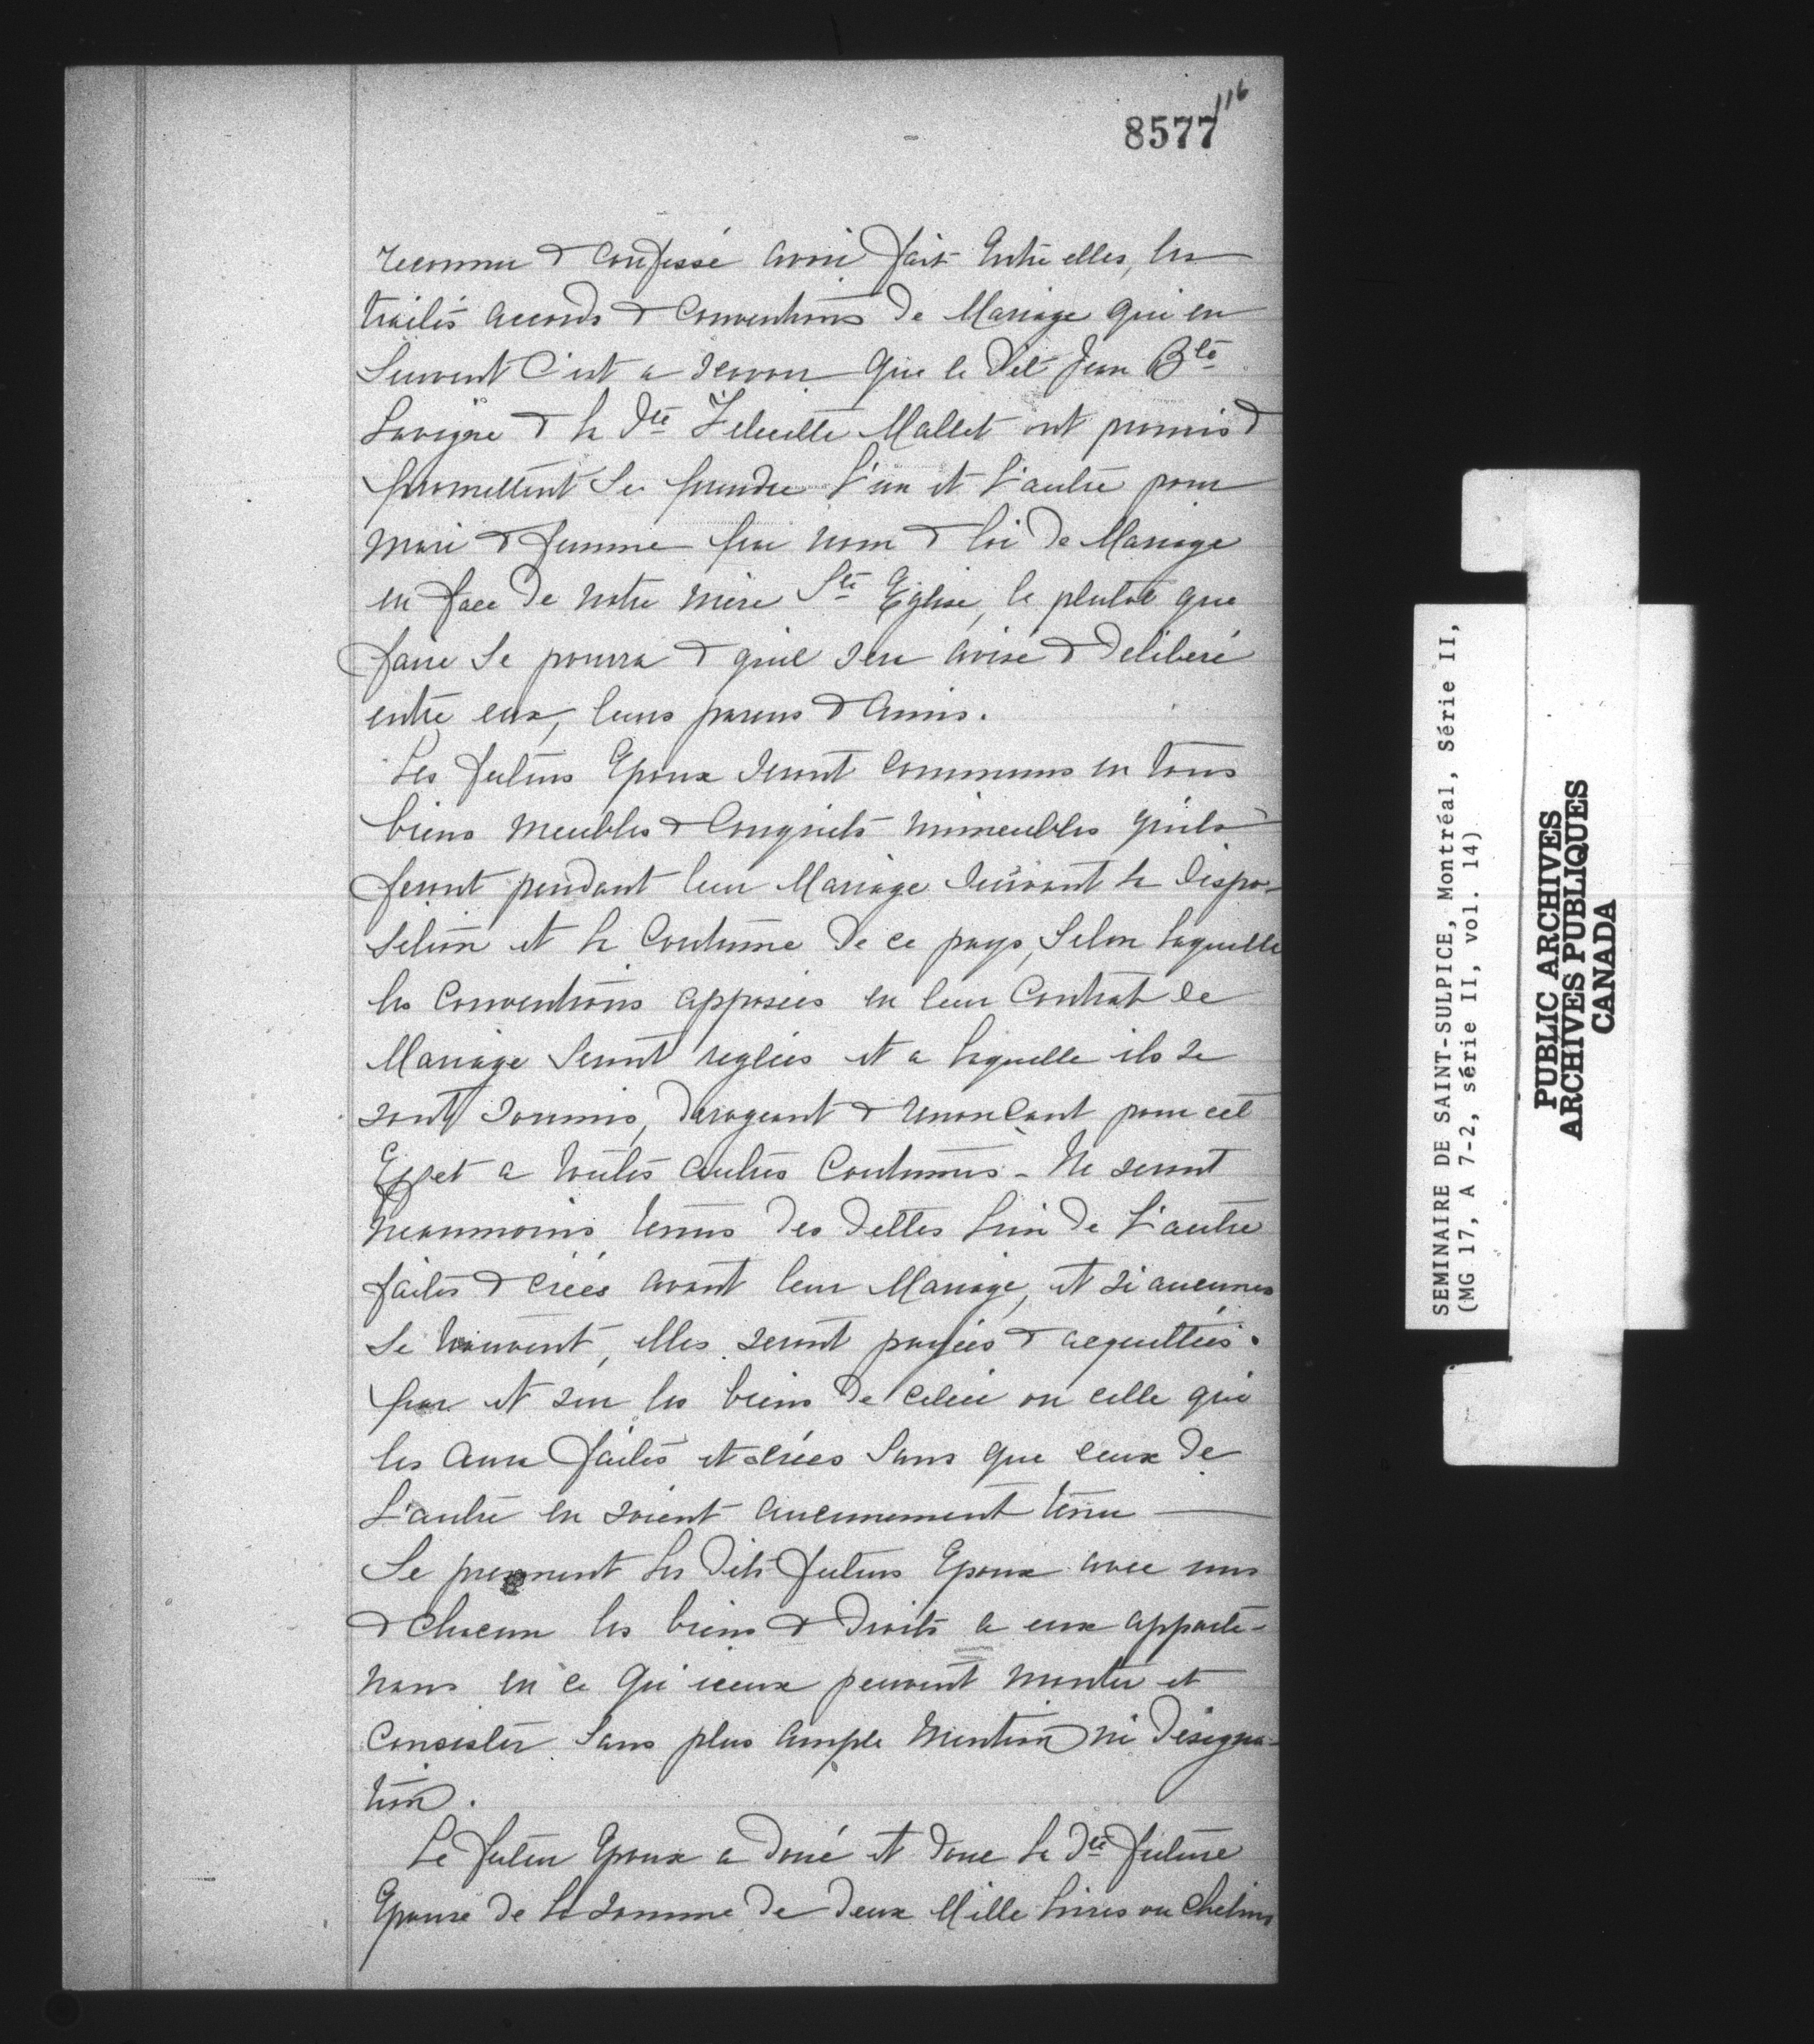 116
8577
reconnu & confessé avoir fait Entre elles, les
traités accords & conventions de Mariage qui en
Suivent C'est a scavoir que le dit Jean Bte
Lavigne & la dte Felicitte Mallet ont promis &
promettent Se prendre l'un et l'autre pour
mari & femme par nom & loi de Mariage
en face de notre mère Ste Eglise, le plutot que
faire Se pourra & qu'il sera avisé & deliberé
entre eux, leurs parens & amis.
Les futurs Epoux seront communs en tous
biens meubles & Conquets immeubles qu'ils
feront pendant leur Mariage suivant la dispo-
sition et la Coutume de ce pays, Selon laquelle
les conventions apposées en leur Contrat de
Mariage Seront reglées et a laquelle ils se
sont soumis, derogeant & renoncant pour cet
Effet a toutes autres Coutumes - Ne seront
neanmoins tenus des dettes l'un de l'autre
faites & créés avant leur Mariage, et si aucunes
se trouvent, elles seront payées & acquittées.
par et sur les biens de celui ou celle qui
les aura faites et créés Sans que ceux de
L'autre en soient aucunement tenu —
Se prennent les dits futurs Epoux avec tous
& chacun les biens & droits a eux apparte-
nans en ce qu'iceux peuvent monter et
consister Sans plus ample mention ni designa-
tion.
Le futur Epoux a doué et doue la dte future
Epouse de la somme de deux Mille livres ou chelins
SEMINAIRE DE SAINT-SULPICE, Montréal, Série II,
(MG 17, A 7-2, série II, vol. 14)
PUBLIC ARCHIVES
ARCHIVES PUBLIQUES
CANADA